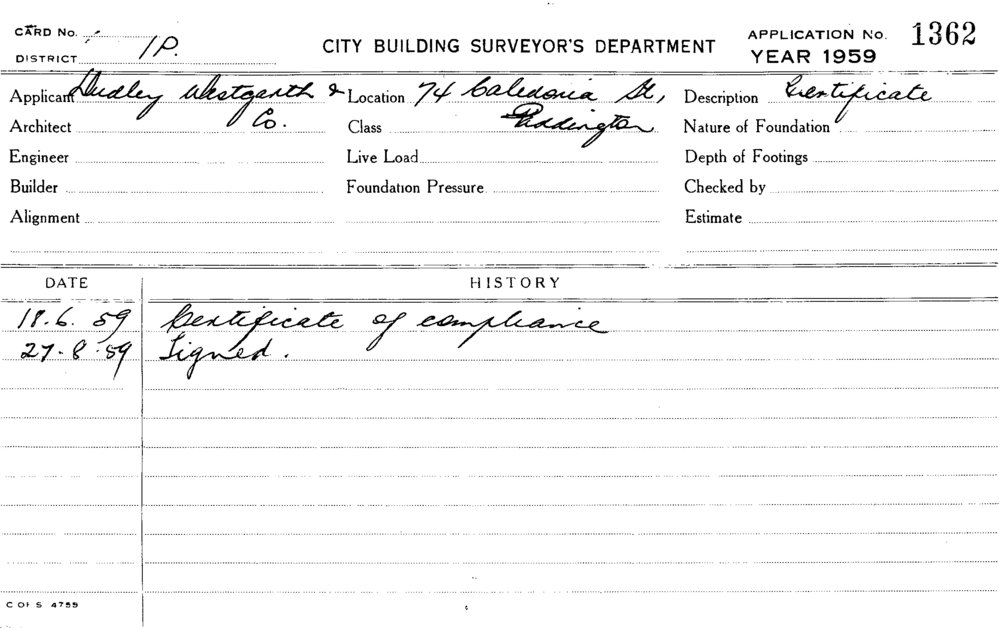 CARD No.
1P.
DISTRICT
CITY BUILDING SURVEYOR'S DEPARTMENT
APPLICATION No. 1362
YEAR 1959
Applicant Dudley Westgarth & Co.
Location 74 Caledonia St, Paddington
Description Certificate
Architect
Class
Nature of Foundation
Engineer
Live Load
Depth of Footings
Builder
Foundation Pressure
Checked by
Alignment
Estimate
DATE HISTORY
18.6.59 Certificate of compliance
27.8.59 Signed.
C OF S 4759